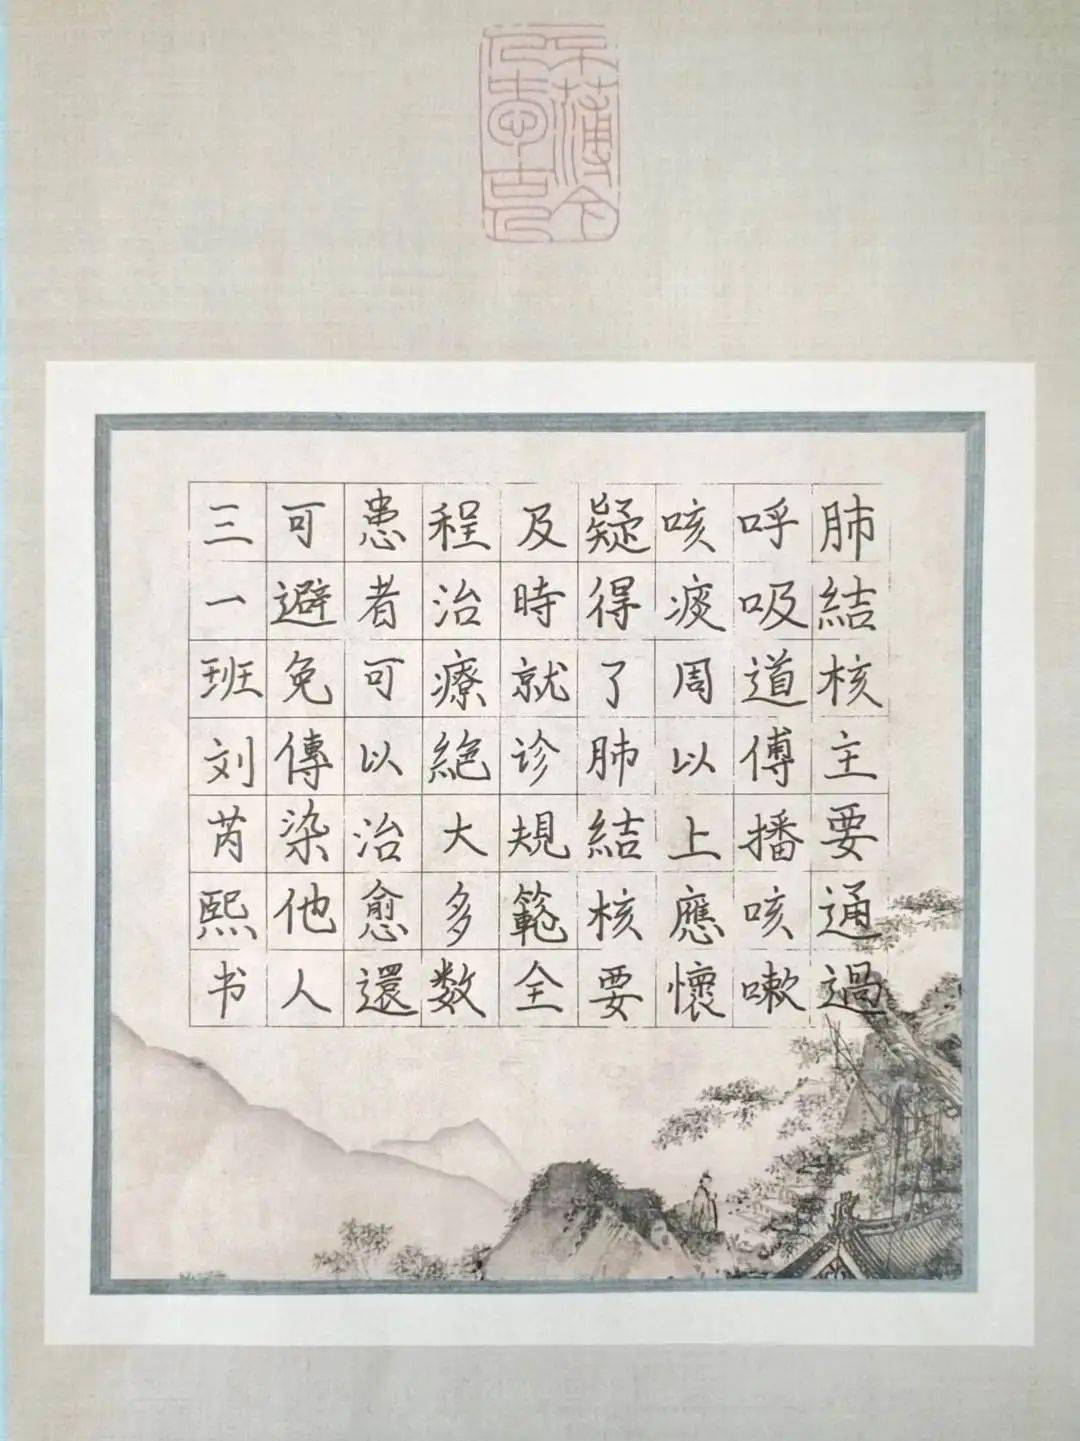 肺結核主要通過
呼吸道傳播咳嗽
咳痰周以上應懷
疑得了肺結核要
及時就诊規範全
程治療絶大多数
患者可以治愈還
可避免傳染他人
三一班刘芮熙书
不薄今人愛古人